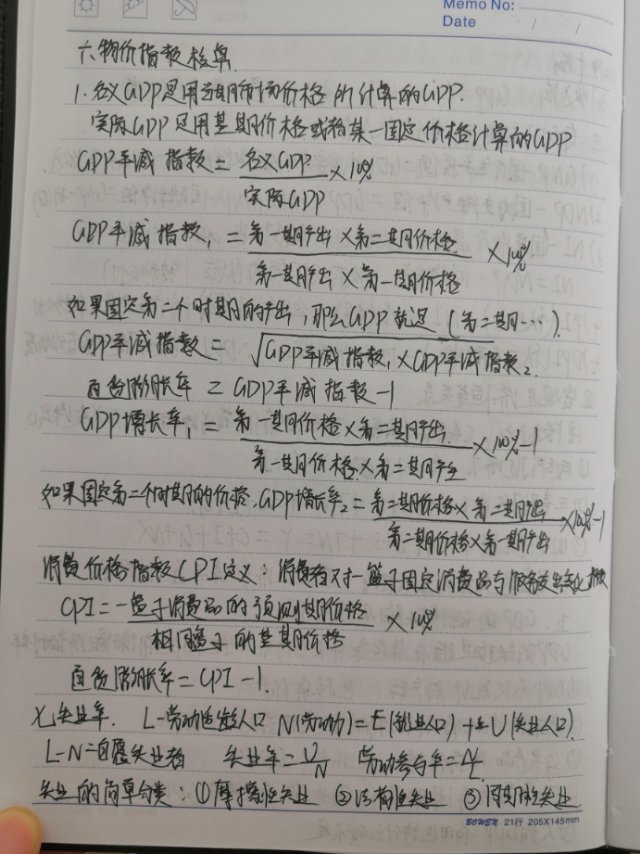 Memo No:
Date / /
六.物价指数核算.
1.名义GDP是用当期市场价格所计算的GDP.
实际GDP是用基期价格或称某一固定价格计算的GDP
GDP平减指数 = 名义GDP/实际GDP ×100%
GDP平减指数₁ = 第一期产出×第二期价格/第一期产出×第一期价格 ×100%
如果固定第二个时期的产出,那么GDP就逞(第二期…).
GDP平减指数 = √GDP平减指数₁×GDP平减指数₂
通货膨胀率 = GDP平减指数-1
GDP增长率₁ = 第一期价格×第二期产出/第一期价格×第二期产 ×100%-1
如果固定第二个时期的价格.GDP增长率₂ = 第二期价格×第二期产出/第二期价格×第一期产出 ×100%-1
消费价格指数CPI定义:消费者对一篮子固定消费品与服务支出变化指数
CPI = 一篮子消费品的预测期价格/相同篮子的基期价格 ×100%
通货膨胀率 = CPI-1.
七失业率. L-劳动适龄人口 N(劳动力)=E(就业人口)+U(失业人口)
L-N=自愿失业者 失业率=U/N 劳动参与率=N/L
失业的简单分类:①摩擦性失业 ②结构性失业 ③周期性失业
BOWEN 21行 205X145mm